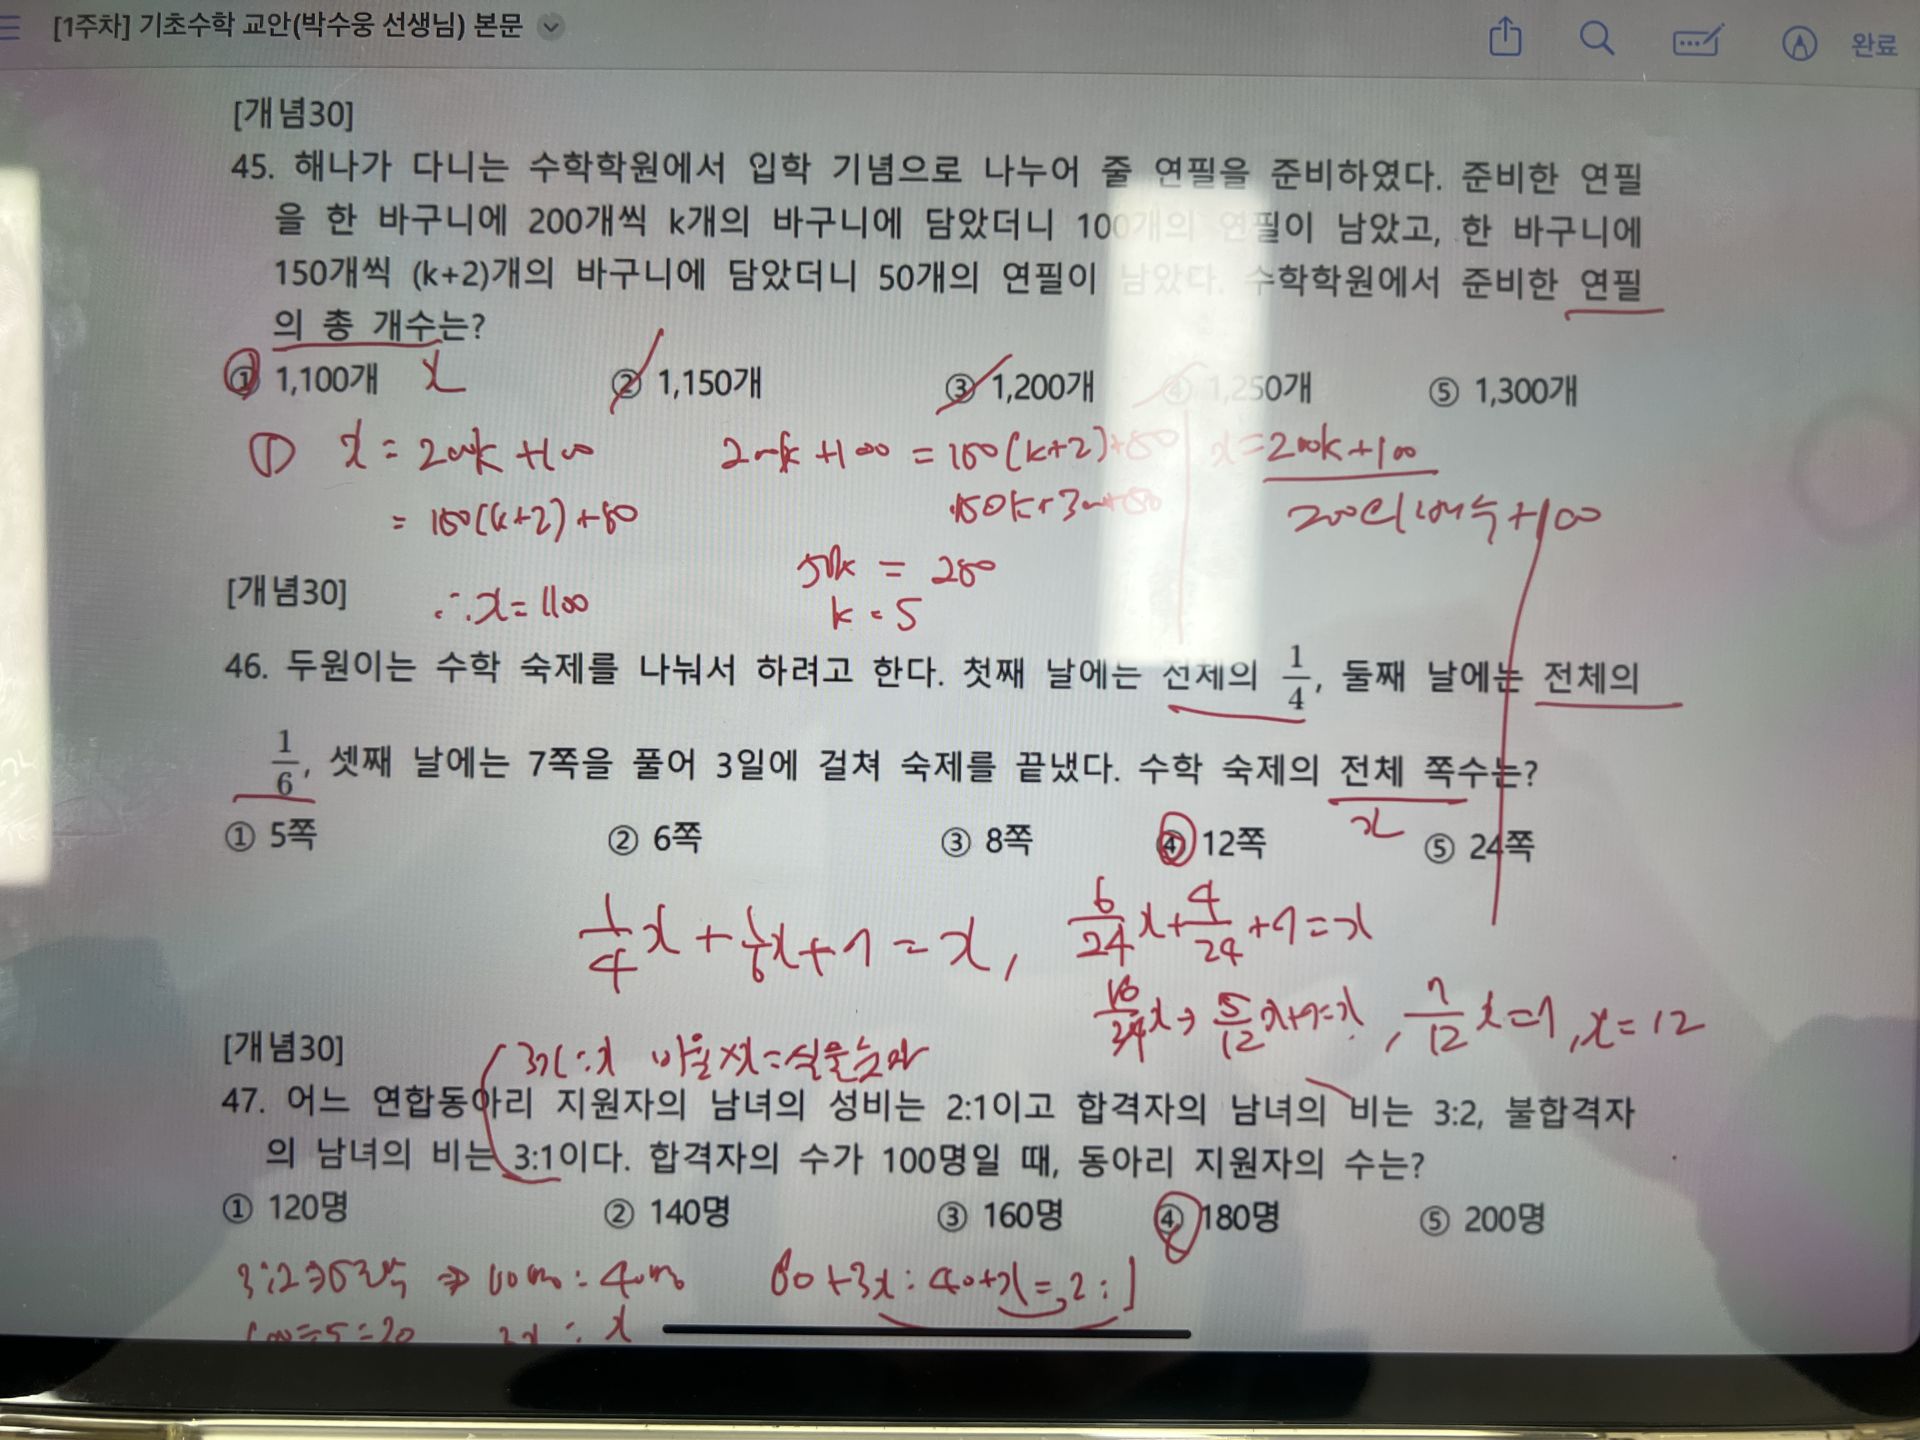 [1주차] 기초수학 교안(박수웅 선생님) 본문
완료
[개념30]
45. 해나가 다니는 수학학원에서 입학 기념으로 나누어 줄 연필을 준비하였다. 준비한 연필
을 한 바구니에 200개씩 k개의 바구니에 담았더니 100개의 연필이 남았고, 한 바구니에
150개씩 (k+2)개의 바구니에 담았더니 50개의 연필이 남았다. 수학학원에서 준비한 연필
의 총 개수는?
① 1,100개 x ② 1,150개 ③ 1,200개 ④ 1,250개 ⑤ 1,300개
① x = 200k+100 200k+100 = 150(k+2)+50 x=200k+100
= 150(k+2)+50 150k+300+50 200의 배수+100
50k = 250
[개념30] ∴x=1100 k=5
46. 두원이는 수학 숙제를 나눠서 하려고 한다. 첫째 날에는 전체의 1/4, 둘째 날에는 전체의
1/6, 셋째 날에는 7쪽을 풀어 3일에 걸쳐 숙제를 끝냈다. 수학 숙제의 전체 쪽수는?
x
① 5쪽 ② 6쪽 ③ 8쪽 ④ 12쪽 ⑤ 24쪽
1/4x+1/6x+7=x, 6/24x+4/24+7=x
10/24x→5/12x+7=x, 7/12x=7, x=12
[개념30] 3x:x 비율×x=실물숫자
47. 어느 연합동아리 지원자의 남녀의 성비는 2:1이고 합격자의 남녀의 비는 3:2, 불합격자
의 남녀의 비는 3:1이다. 합격자의 수가 100명일 때, 동아리 지원자의 수는?
① 120명 ② 140명 ③ 160명 ④ 180명 ⑤ 200명
3:2⇒5조각 ⇒ 60m : 40m 60+3x:40+x=2:1
100÷5=20 3x : x